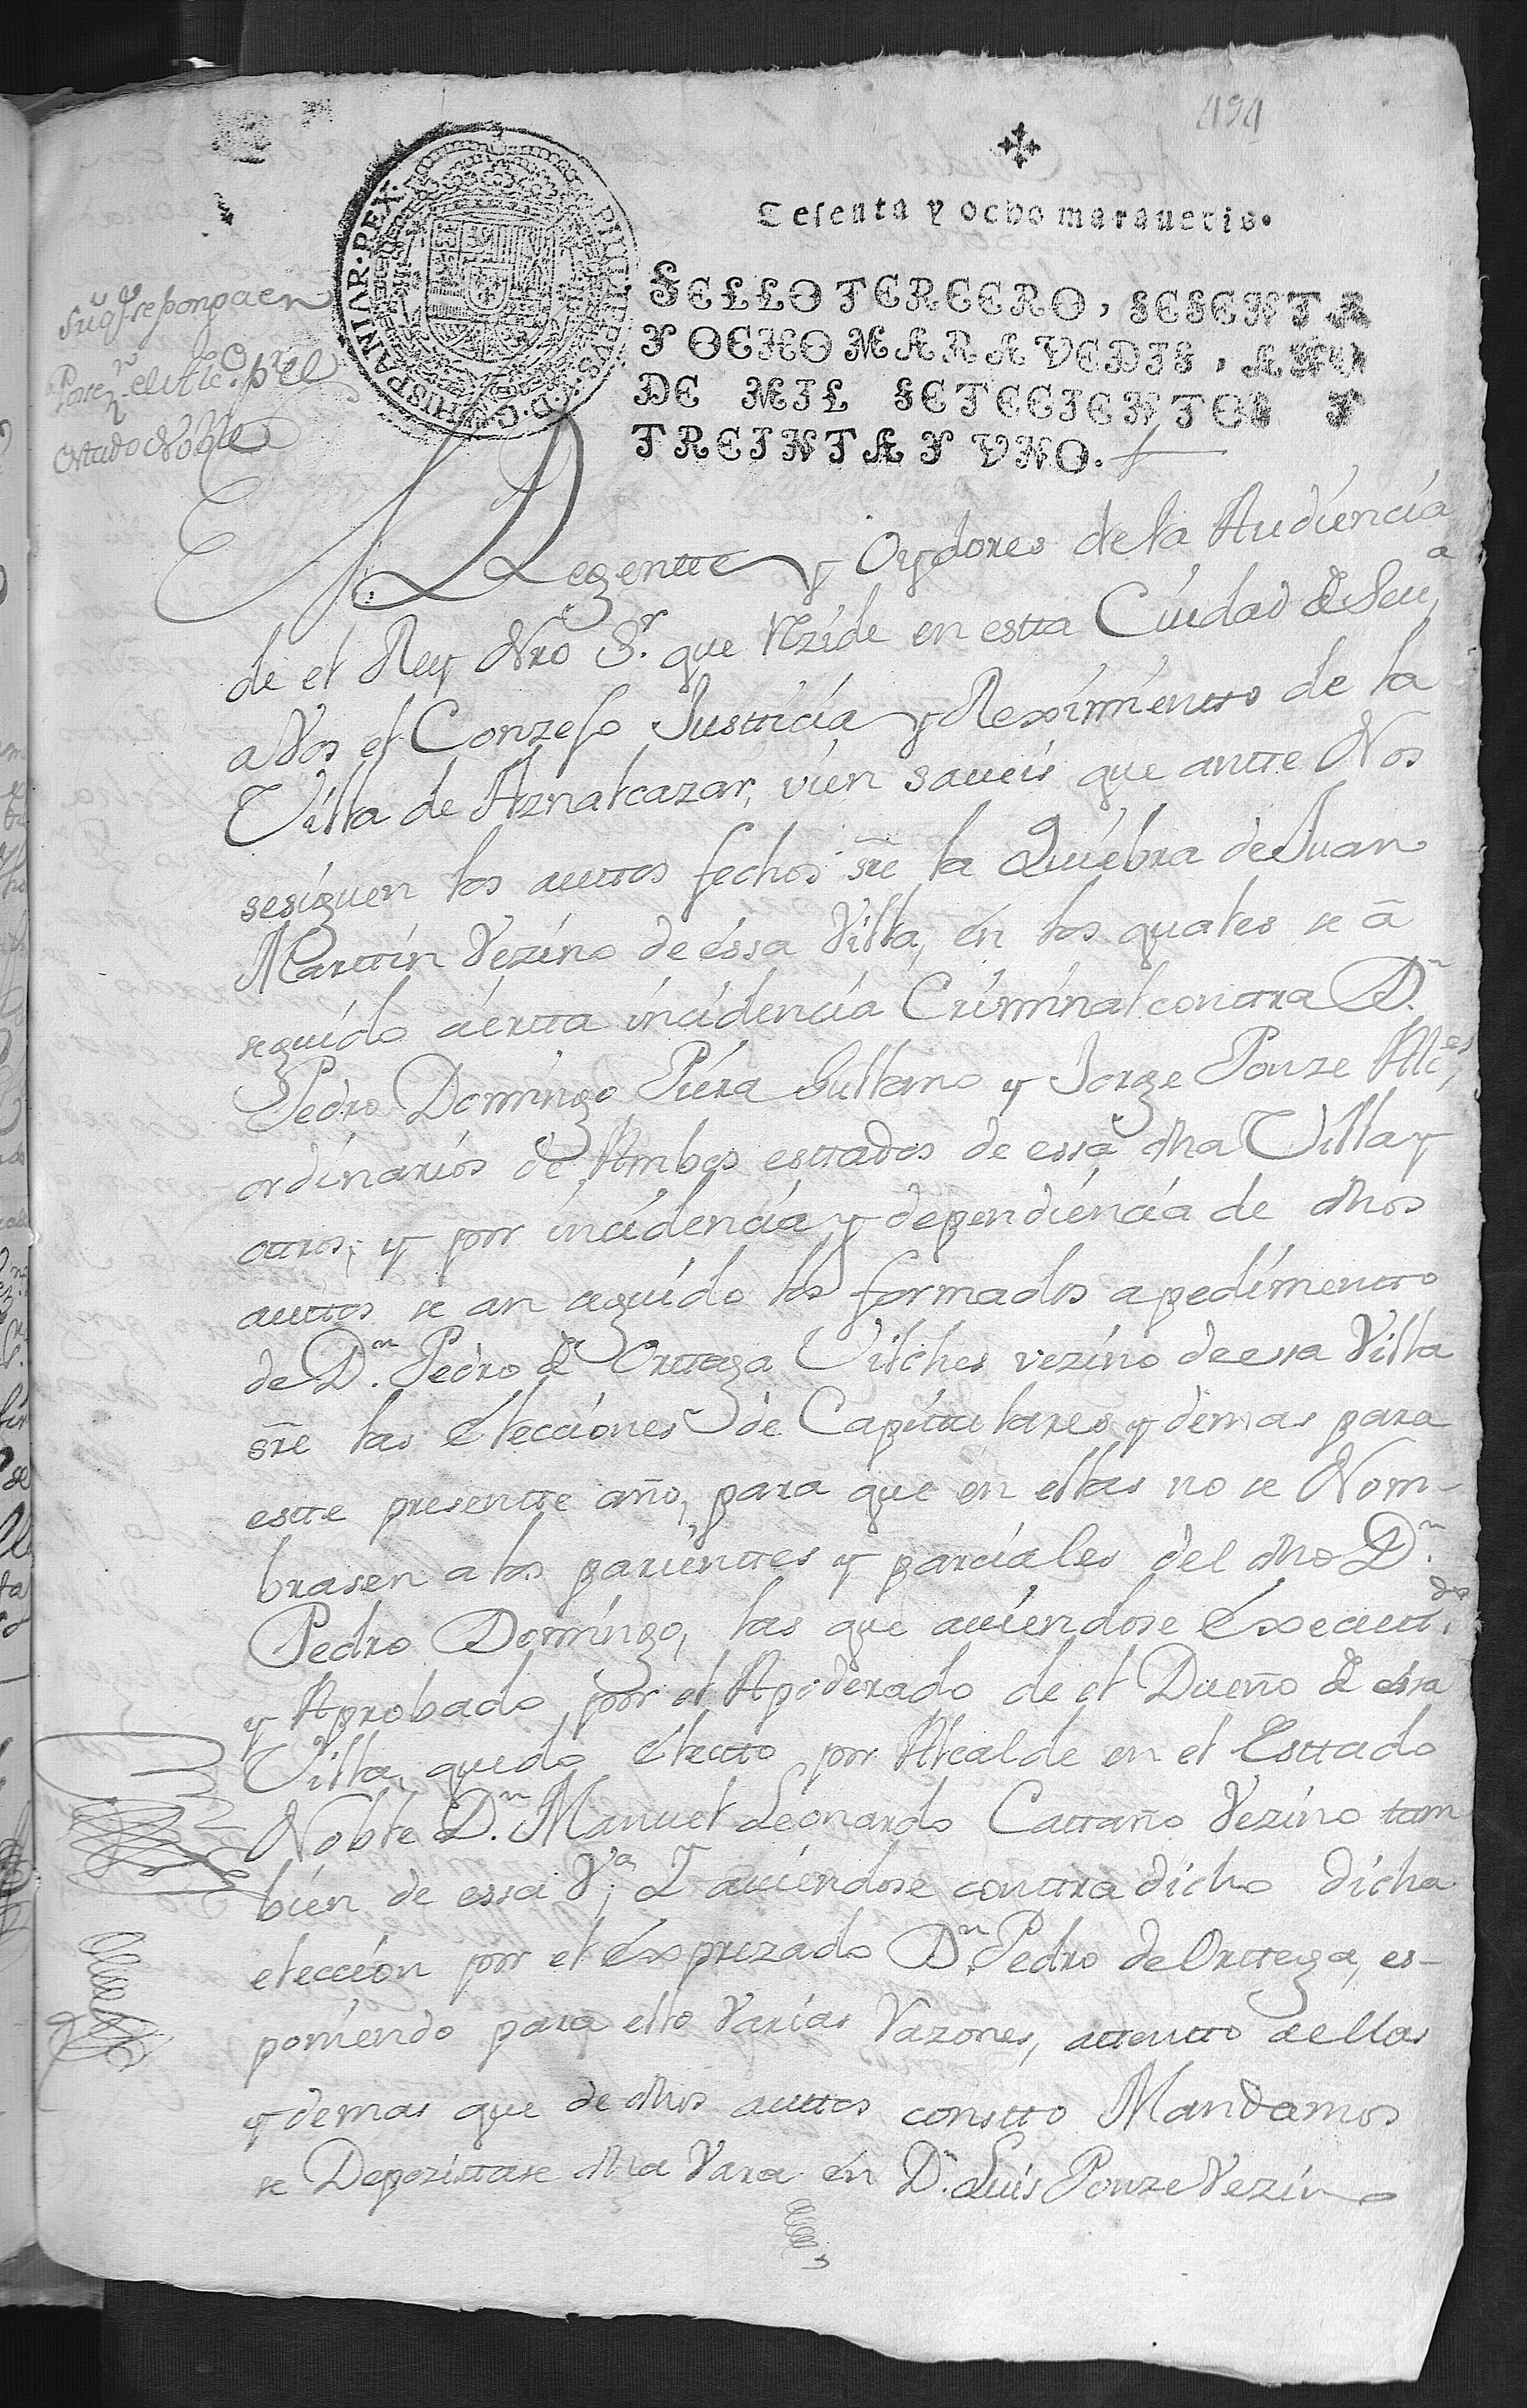 494
Sesenta y ocho maravedis.
SELLO TERCERO, SESENTA
Y OCHO MARAVEDIS, AÑO
DE MIL SETECIENTOS Y
TREINTA Y UNO.
PHILIPPUS. V. D. G. HISPANIAR. REX.
qe. se ponga en
el Alce. pr. el
estado Noble
Regentte y Oydores de la Audiencia
de el Rey Nro Sr. que rezide en estta Ciudad de Seua
a Vos el Conzejo Justticia y Reximientto de la
Villa de Aznalcazar, vien saueis que antte Nos
se siguen los auttos fechos sre la Quiebra de Juan
Marttin Vezino de essa Villa, en los quales se ā
seguido zierta incidencia Criminal conttra Dn.
Pedro Domingo Piera Gullamo y Jorge Ponze Alces
ordinarios de Ambos esttados de essa dha Villa y
ottros; y por incidencia y dependiencia de dhos
auttos se an seguido los formados a pedimentto
de Dn. Pedro de Orttega Vilches vezino de essa Villa
sre las elecciones de Capittulares y demas para
estte presentte año, para que en ellas no se Nom-
brasen a los parienttes y parciales del dho Dn.
Pedro Domingo, las que auiendose executdo.
y Aprobado por el Apoderado de el Dueño de essa
Villa, quedo electto por Alcalde en el Esttado
Noble Dn. Manuel Leonardo Cattaño Vezino tam
bien de essa Va; Y auiendose conttra dicho dicha
eleccion por el exprezado Dn. Pedro de Orttega, es-
poniendo para ello Varias Razones, attentto a ellas
y demas que de dhos auttos constto Mandamos
se Depozittase dha Vara en Dn. Luis Ponze Vezino